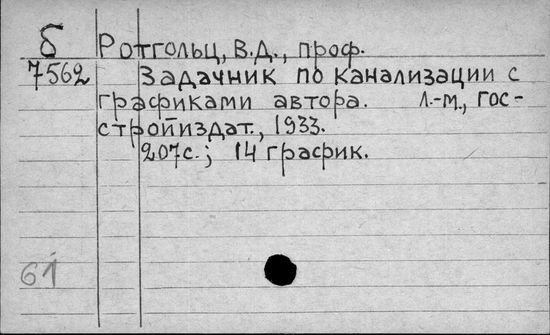 б Ротгольц, В.Д., проф.
7562 Задачник по канализации с
графиками автора. Л.-М., Гос-
стройиздат., 1933.
207с.; 14 график.
61